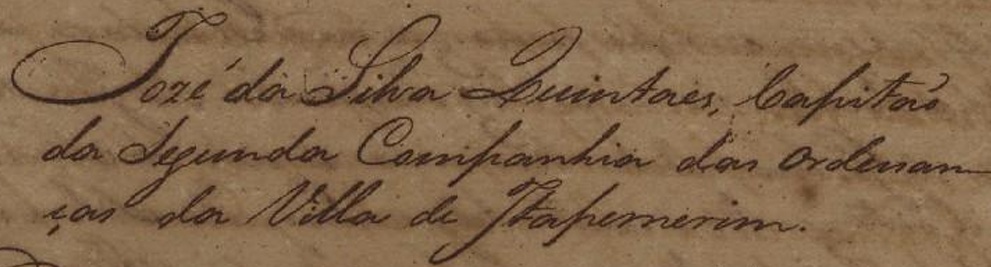 Jozé da Silva Quintaes, Capitaõ
da Segunda Companhia das Ordenan-
ças da Villa de Itapemerim.